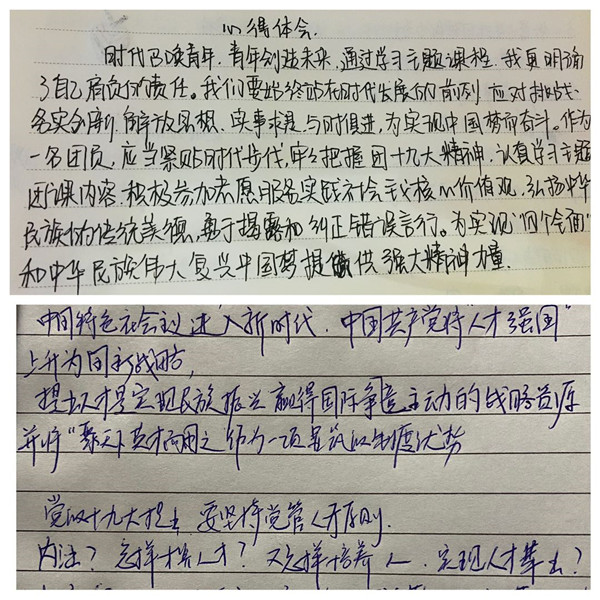 心得体会.
时代召唤青年,青年创造未来,通过学习主题课程,我更明确
了自己肩负的责任。我们要始终站在时代发展的前列 应对挑战、
务实创新、解放思想、实事求是、与时俱进,为实现中国梦而奋斗。作为
一名团员,应当紧贴时代步伐,牢牢把握团十九大精神,认真学习主题
团课内容.积极参加志愿服务实践社会主义核心价值观,弘扬中华
民族的传统美德,勇于揭露和纠正错误言行。为实现“四个全面”
和中华民族伟大复兴中国梦提供强大精神力量.
中国特色社会主义进入新时代,中国共产党将“人才强国”
上升为国家战略,
提出人才是实现民族振兴 赢得国际竞争主动的战略资源
并将“聚天下英才而用之 作为一项显著的制度优势
党的十九大提出 要坚持党管人才原则.
内涵? 怎样择人才? 又怎样培养人.实现人才辈出?